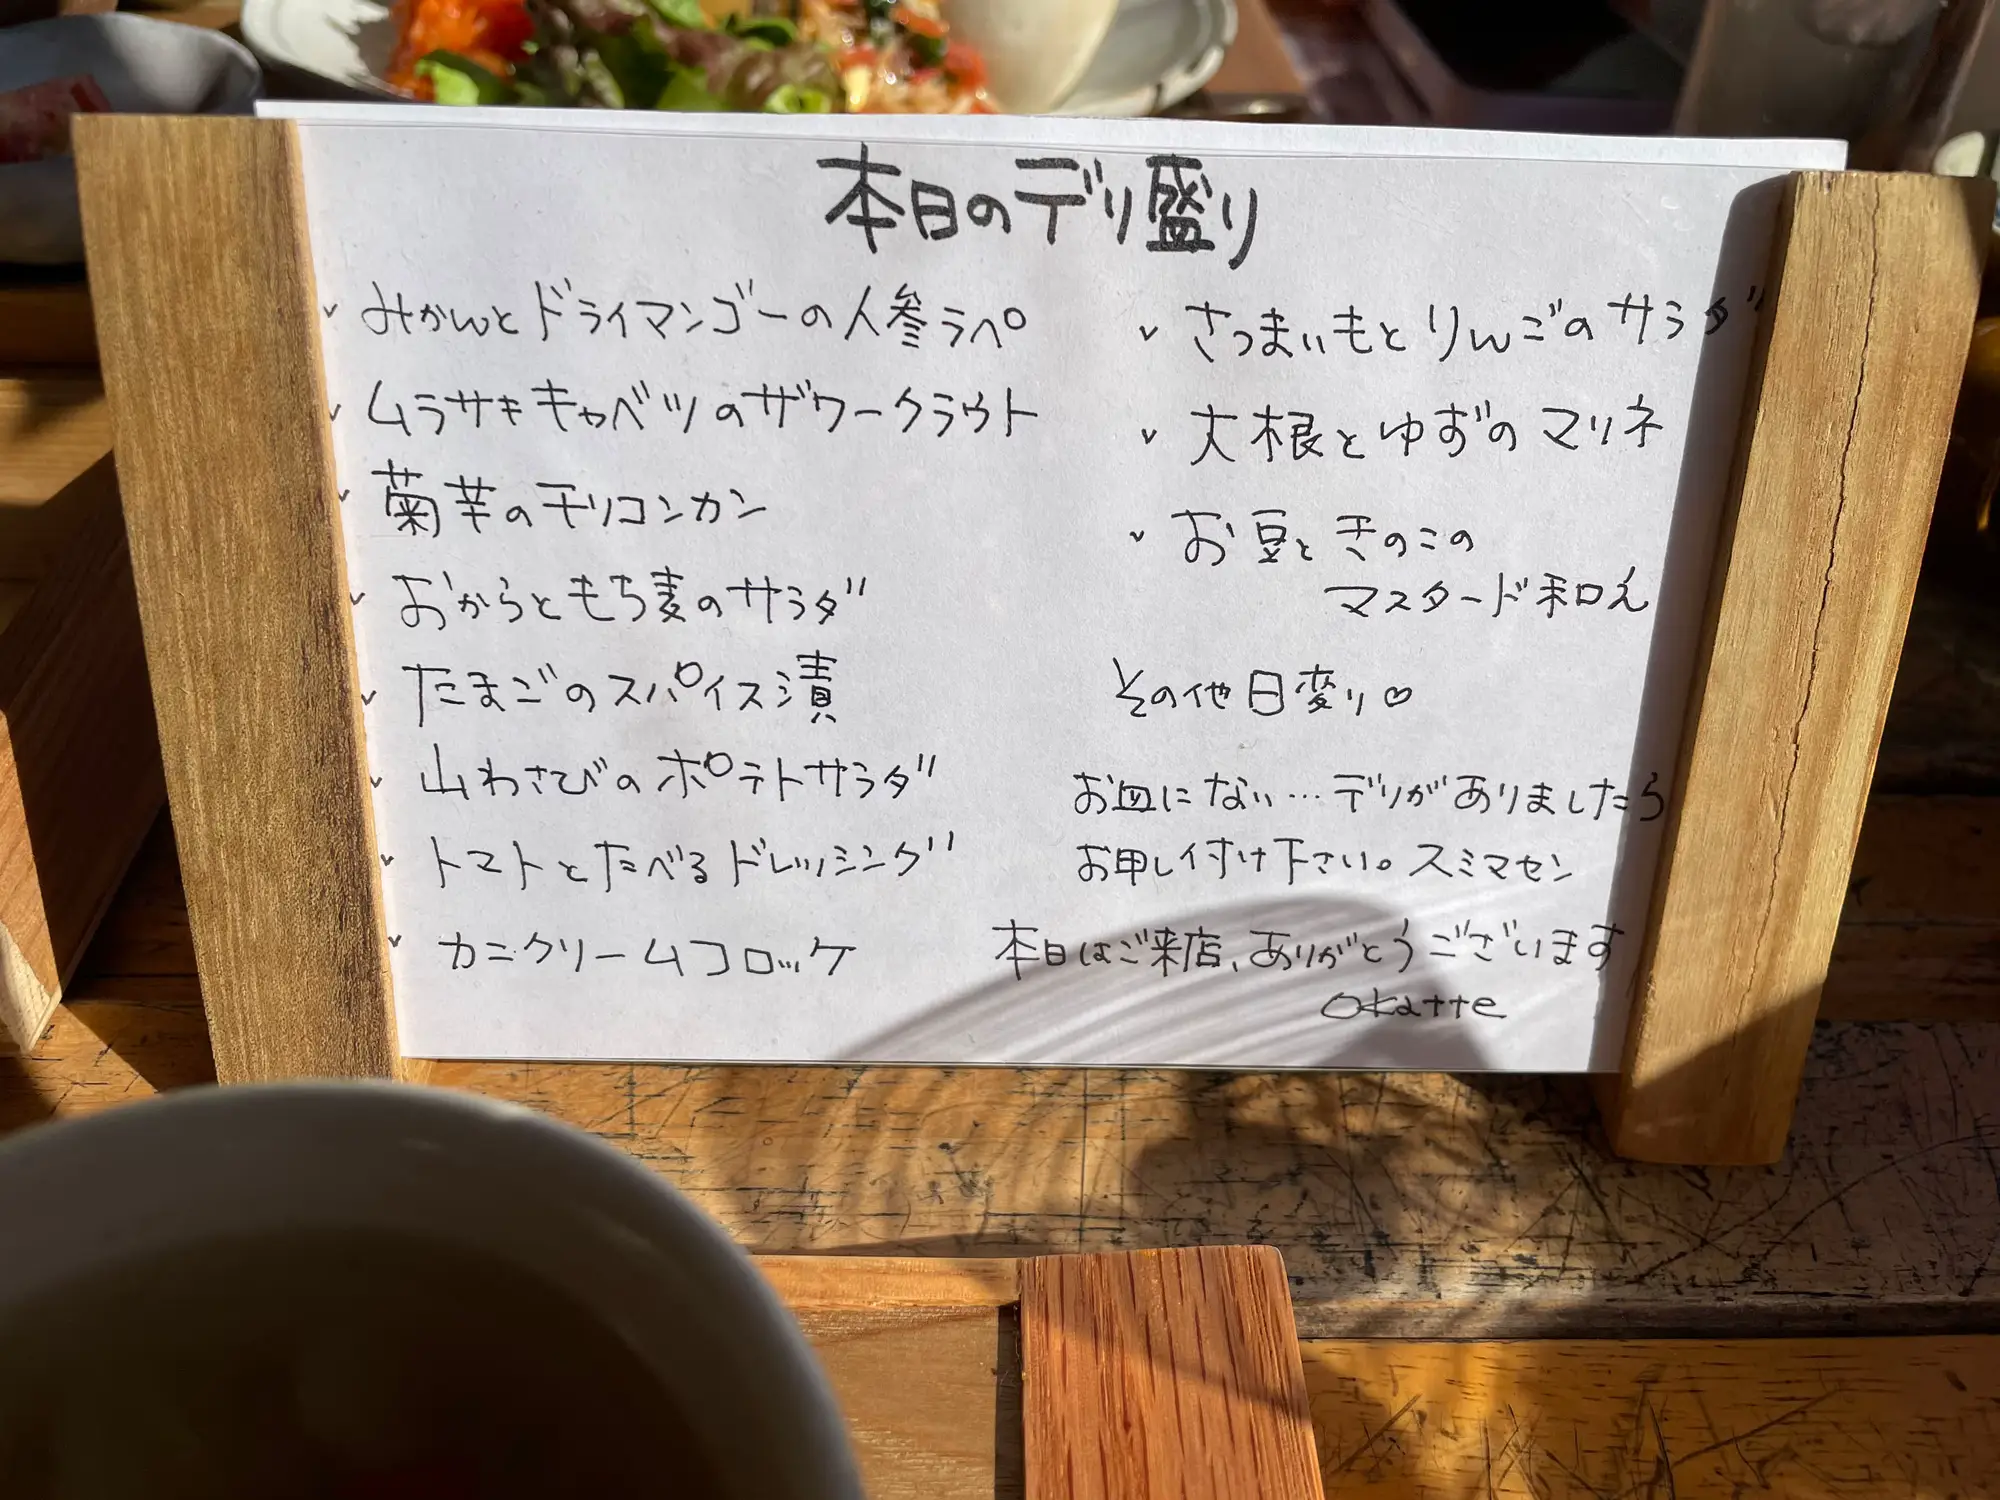 本日のデリ盛り
✓ みかんとドライマンゴーの人参ラペ
✓ ムラサキキャベツのザワークラウト
✓ 菊芋のモリコンカン
✓ おからともち麦のサラダ
✓ たまごのスパイス漬
✓ 山わさびのポテトサラダ
✓ トマトとたべるドレッシング
✓ カニクリームコロッケ
✓ さつまいもとりんごのサラダ
✓ 大根とゆずのマリネ
✓ お豆ときのこの
マスタード和え
その他日変り♡
お皿にない…デリがありましたら
お申し付け下さい。スミマセン
本日はご来店、ありがとうございます
okatte